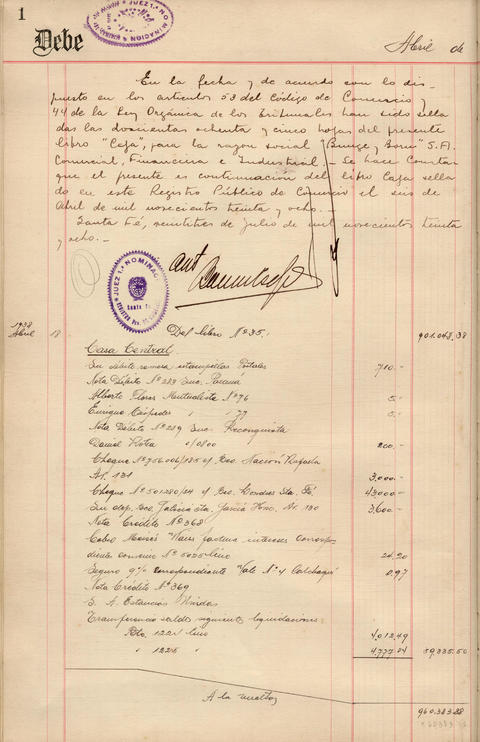 1
Debe
Abril de
En la fecha y de acuerdo con lo dis-
puesto en los artículos 53 del Código de Comercio y
44 de la Ley Orgánica de los Tribunales han sido sella
das las doscientas ochenta y cinco hojas del presente
libro "Caja", para la razón social "Bunge y Born" S.A.
Comercial, Financiera e Industrial.- Se hace Constar
que el presente es continuación del libro Caja sella
do en este Registro Público de Comercio el seis de
Abril de mil novecientos treinta y ocho.-
Santa Fé, veintitres de julio de mil novecientos treinta
y ocho.-
JUEZ 1ª NOMINAC
1938
Abril 18 Del libro Nº 35. 901.048,38
Casa Central
Su débito remesa estampillas Postales 710.-
Nota Débito Nº 283 Suc. Paraná
Alberto Flores Mutualista Nº 76 5.-
Enrique Céspedes " " 77 5.-
Nota Débito Nº 289 Suc. Reconquista
Daniel o/0800 200.-
Cheque Nº 756.006/185 o/ Bco. Nación Rafaela
Ar. 131 3.000.-
Cheque Nº 501280/24 o/ Bco. Londres Sta. Fé. 43000.-
Su dep. Bco. Galicia Sta. García Hnos. Ar. 130 3.600.-
Nota Crédito Nº 368
Cobro factura intereses correspon
diente convenio Nº 5025 lino 24.20
Seguro 9% correspondiente "Vale Nº 4 Calchaquí" 0.97
Nota Crédito Nº 369
S. A. Estancias
Transferencia saldo siguientes liquidaciones:
Rto. 1224 lino 4.012,49
" 1225 " 4.777.84 59335.50
A la vuelta 960.383.88